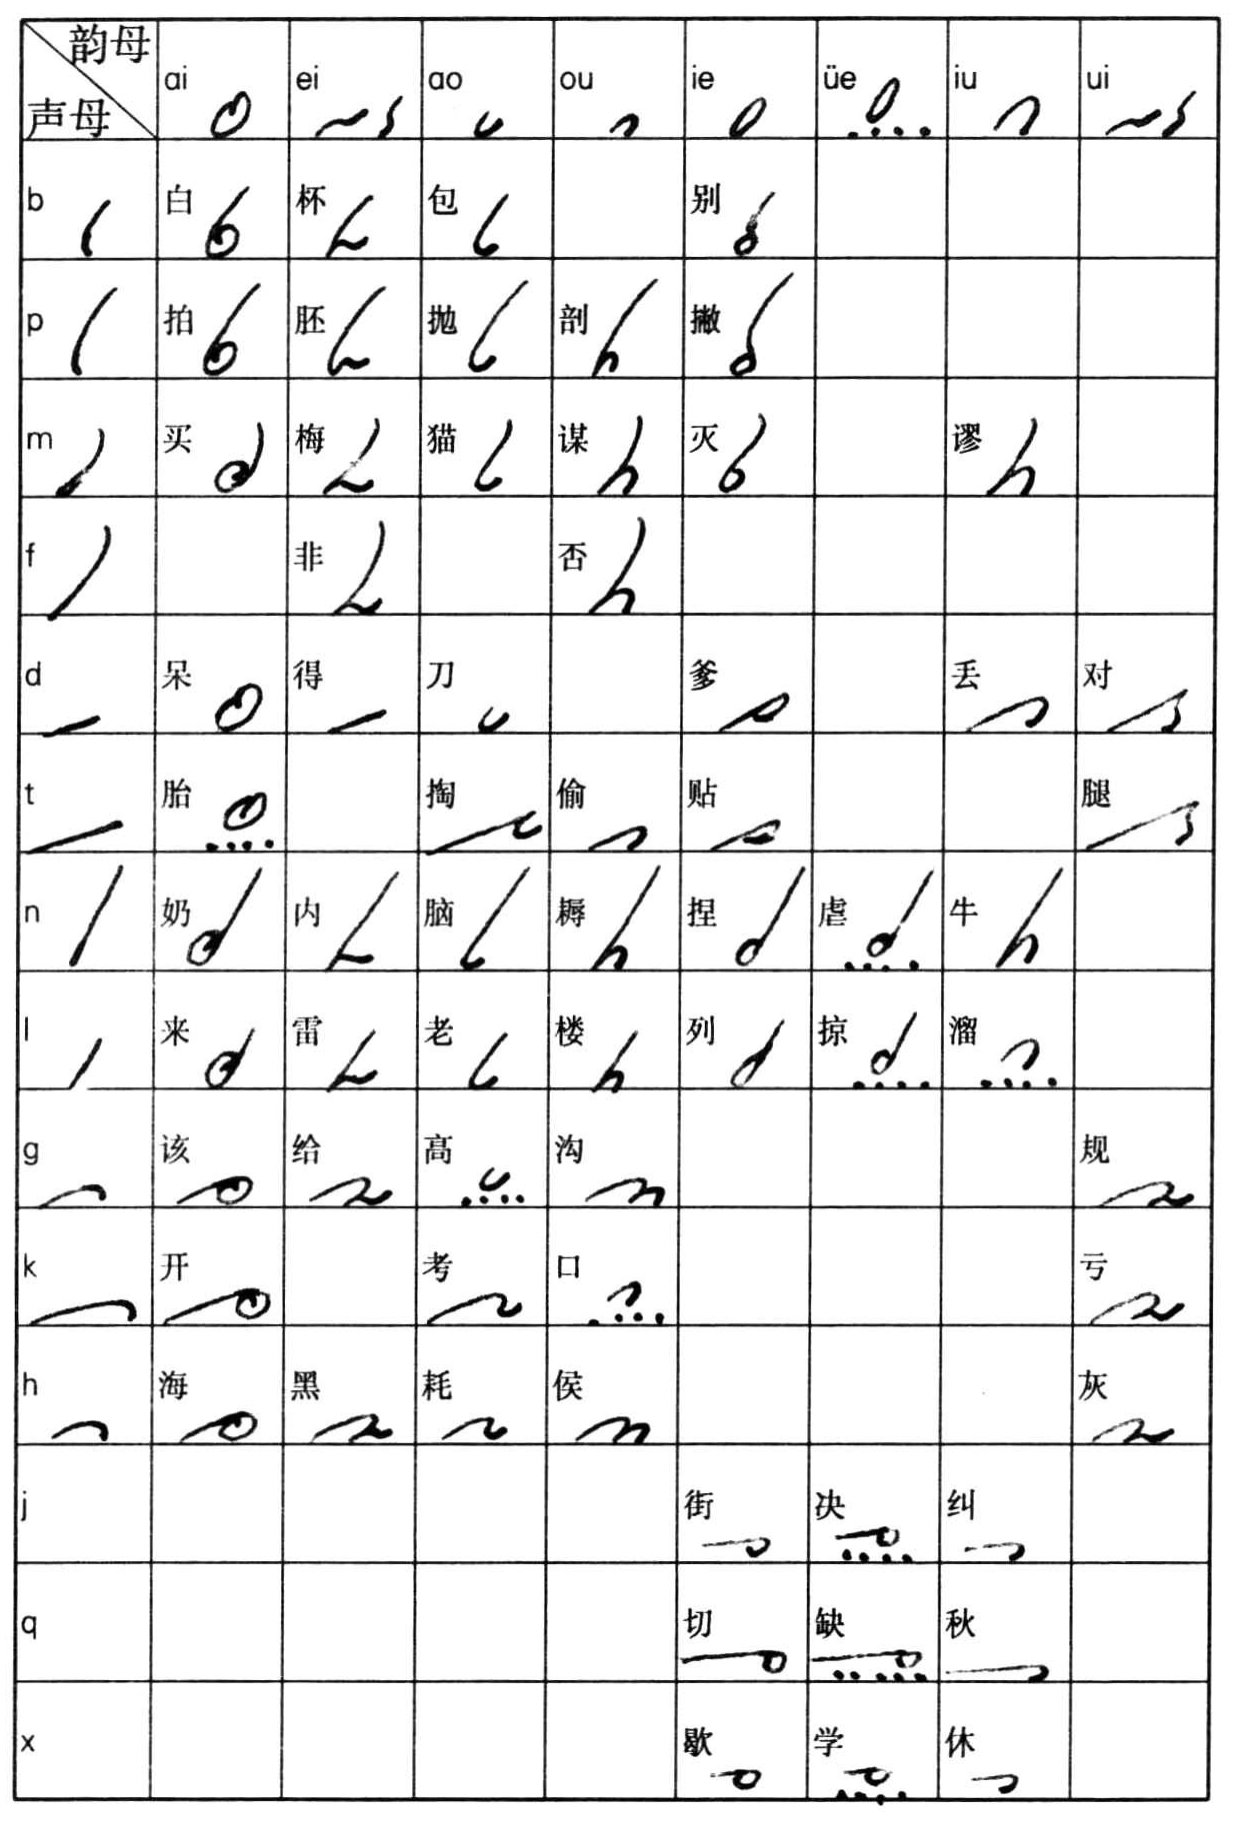 韵母 声母 ai ei ao ou ie üe iu ui
b 白 杯 包 别
p 拍 胚 抛 剖 撇
m 买 梅 猫 谋 灭 谬
f 非 否
d 呆 得 刀 爹 丢 对
t 胎 掏 偷 贴 腿
n 奶 内 脑 耨 捏 虐 牛
l 来 雷 老 楼 列 掠 溜
g 该 给 高 沟 规
k 开 考 口 亏
h 海 黑 耗 侯 灰
j 街 决 纠
q 切 缺 秋
x 歇 学 休